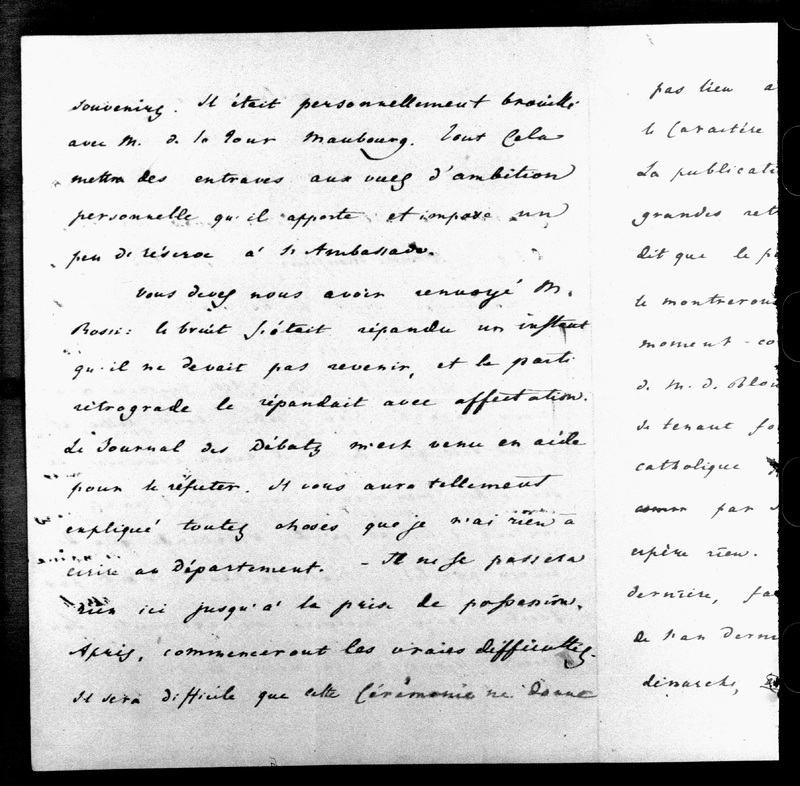 souvenirs. Il était personnellement brouillé
avec M. de la Tour Maubourg. Tout cela
mettra des entraves aux vues d'ambition
personnelle qu'il apporte et impose un
peu de réserve à l'Ambassade.
Vous devez nous avoir renvoyé M.
Rossi: le bruit s'était répandu un instant
qu'il ne devait pas revenir, et le parti
rétrograde le répandait avec affectation.
Le Journal des Débats m'est venu en aide
pour le réfuter. Il vous aura tellement
expliqué toutes choses que je n'ai rien à
écrire au Département. - Il ne se passera
rien ici jusqu'à la prise de possession.
Après, commenceront les vraies difficultés.
Il sera difficile que cette Cérémonie ne donne
pas lieu a
le Caractère
La publicati
grandes
dit que le
le montreront
moment - co
de M. de
se tenant
catholique
par
espère rien.
dernière, fa
de l'an derni
démarche,